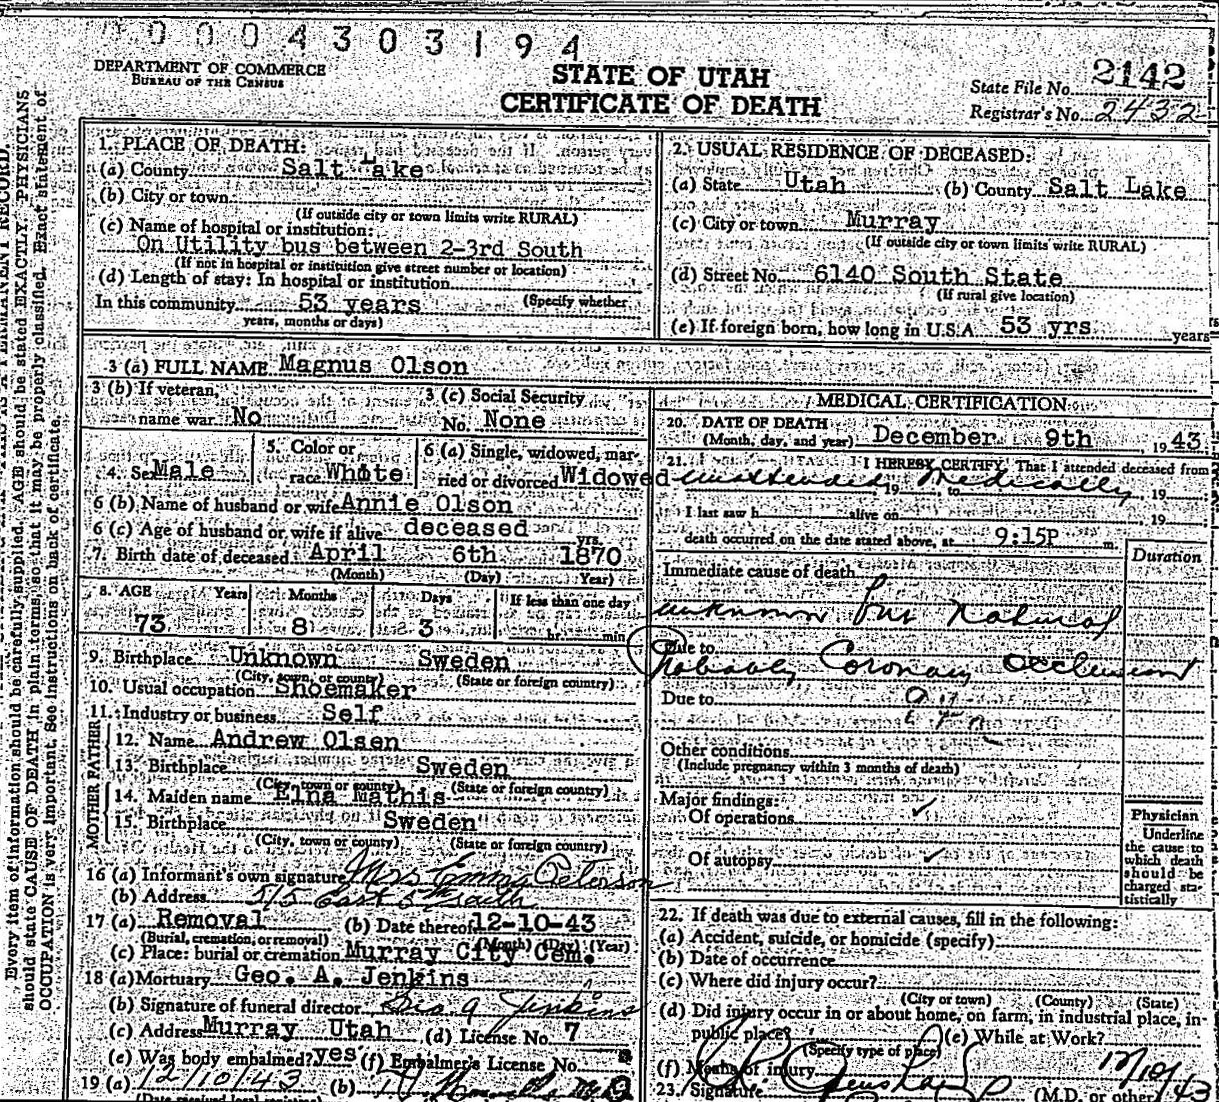 00004303194
DEPARTMENT OF COMMERCE
BUREAU OF THE CENSUS
STATE OF UTAH
CERTIFICATE OF DEATH
State File No. 2142
Registrar's No. 2432
Every item of information should be carefully supplied. AGE should be stated EXACTLY. PHYSICIANS
should state CAUSE OF DEATH in plain terms, so that it may be properly classified. Exact statement of
OCCUPATION is very important. See instructions on back of certificate.
1. PLACE OF DEATH:
(a) County Salt Lake
(b) City or town
(If outside city or town limits write RURAL)
(c) Name of hospital or institution:
On Utility bus between 2-3rd South
(If not in hospital or institution give street number or location)
(d) Length of stay: In hospital or institution
In this community 53 years (Specify whether
years, months or days)
2. USUAL RESIDENCE OF DECEASED:
(a) State Utah (b) County Salt Lake
(c) City or town Murray
(If outside city or town limits write RURAL)
(d) Street No. 6140 South State
(If rural give location)
(e) If foreign born, how long in U.S.A 53 yrs years
3 (a) FULL NAME Magnus Olson
3 (b) If veteran,
name war No
3 (c) Social Security
No. None
4. Sex Male
5. Color or
race White
6 (a) Single, widowed, mar-
ried or divorced Widowed
6 (b) Name of husband or wife Annie Olson
6 (c) Age of husband or wife if alive deceased yrs.
7. Birth date of deceased April 6th 1870
(Month) (Day) Year)
8. AGE Years Months Days If less than one day
73 8 3 hr. min
9. Birthplace Unknown Sweden
(City, town, or county) (State or foreign country)
10. Usual occupation Shoemaker
11. Industry or business Self
FATHER
12. Name Andrew Olsen
13. Birthplace Sweden
(City, town or county) (State or foreign country)
MOTHER
14. Maiden name Elna Mathis
15. Birthplace Sweden
(City, town or county) (State or foreign country)
16 (a) Informant's own signature Mrs Emma Peterson
(b) Address 515 East 5th South
17 (a) Removal (b) Date thereof 12-10-43
(Burial, cremation, or removal) (Month) (Day) (Year)
(c) Place: burial or cremation Murray City Cem.
18 (a) Mortuary Geo. A. Jenkins
(b) Signature of funeral director Geo A Jenkins
(c) Address Murray Utah (d) License No. 7
(e) Was body embalmed? yes (f) Embalmer's License No.
19 (a) 12/10/43 (b)
MEDICAL CERTIFICATION
20. DATE OF DEATH
(Month, day, and year) December 9th, 1943
21. I HEREBY CERTIFY That I attended deceased from
unattended, 19 to Medically, 19
I last saw h alive on , 19
death occurred on the date stated above, at 9:15P m.
Duration
Immediate cause of death
unknown but Natural
Due to
Probably Coronary Occlusion
Due to
Other conditions
(Include pregnancy within 3 months of death)
Major findings:
Of operations ✓
Of autopsy ✓
Physician
Underline
the cause to
which death
should be
charged sta-
tistically
22. If death was due to external causes, fill in the following:
(a) Accident, suicide, or homicide (specify)
(b) Date of occurrence
(c) Where did injury occur?
(City or town) (County) (State)
(d) Did injury occur in or about home, on farm, in industrial place, in
public place? (e) While at Work?
(Specify type of place)
(f) Means of injury 12/10/43
23. Signature (M.D. or other)